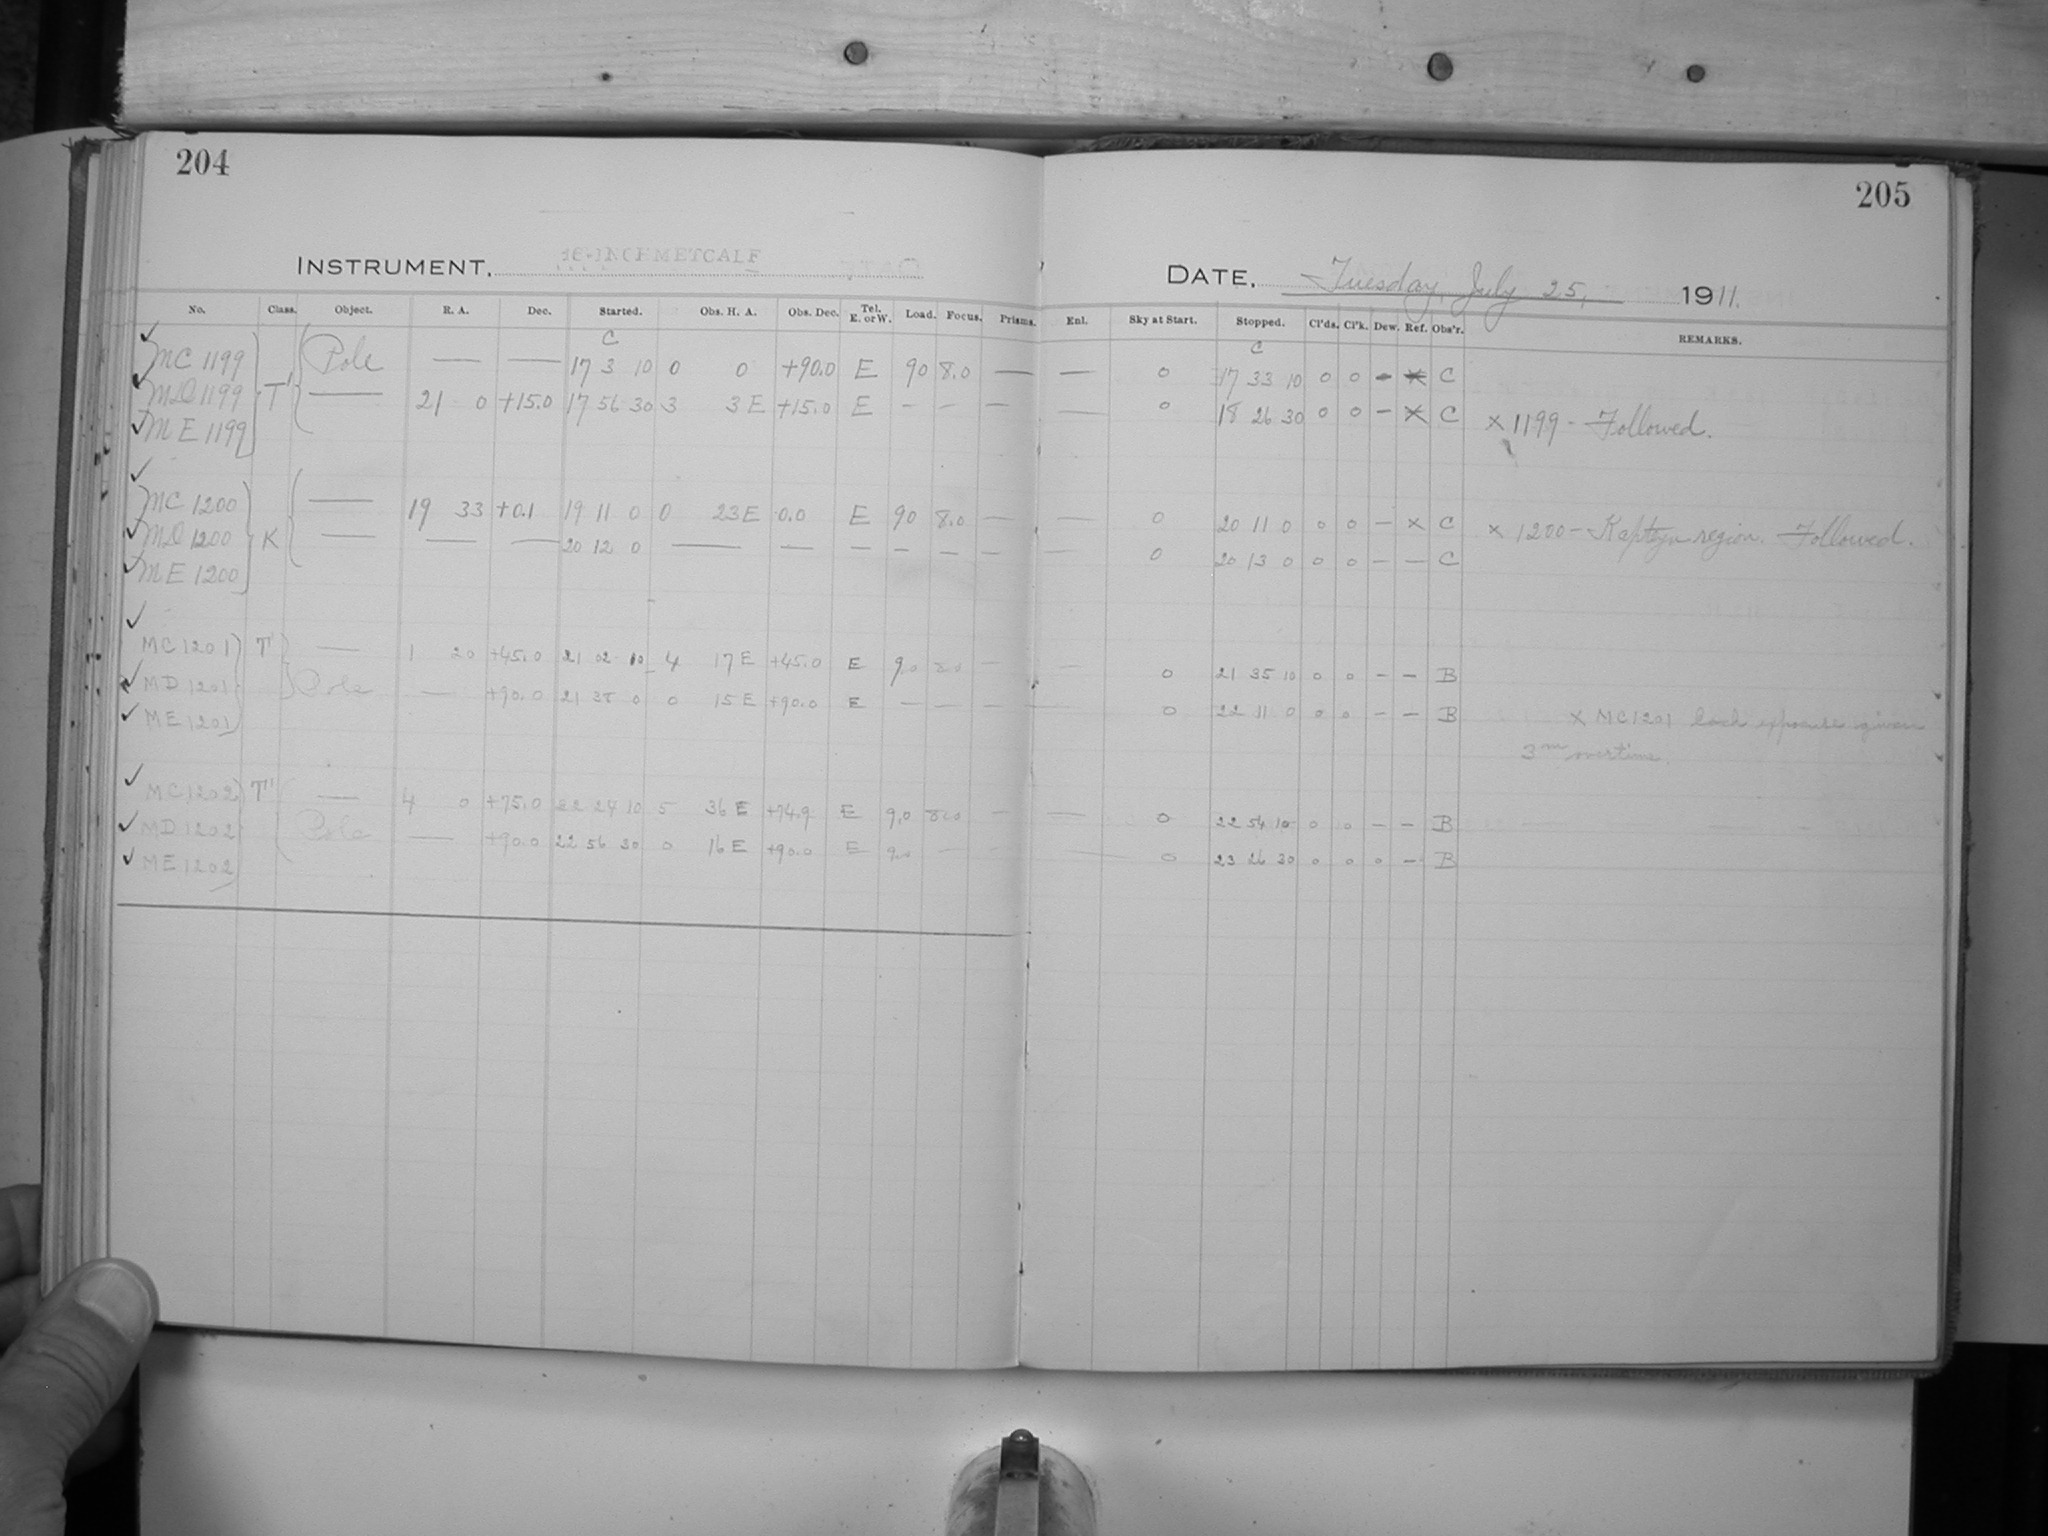 204
205
INSTRUMENT, 16-INCH METCALF
DATE, Tuesday, July 25, 1911.
No. Class. Object. R. A. Dec. Started. Obs. H. A. Obs. Dec. Tel. E. or W. Load. Focus. Prisms. Enl. Sky at Start. Stopped. Cl'ds. Cl'k. Dew. Ref. Obs'r. REMARKS.
C C
MC 1199 Pole — — 17 3 10 0 0 +90.0 E 90 8.0 — — 0 17 33 10 0 0 - x C
MD 1199 T' — 21 0 +15.0 17 56 30 3 3 E +15.0 E - - - — 0 18 26 30 0 0 - x C
ME 1199 x 1199 - Followed.
MC 1200 — 19 33 +0.1 19 11 0 0 23 E 0.0 E 90 8.0 — — 0 20 11 0 0 0 - x C x 1200 - Kapteyn region. Followed.
MD 1200 K — — — 20 12 0 — — - - - - — 0 20 13 0 0 0 - - C
ME 1200
MC 1201 T' — 1 20 +45.0 21 02 10 4 17 E +45.0 E 9.0 8.0 - — 0 21 35 10 0 0 - - B
MD 1201 Pole — +90.0 21 38 0 0 15 E +90.0 E - - - — 0 22 11 0 0 0 - - B
ME 1201 x MC1201 each exposure given
3m overtime.
MC 1202 T' — 4 0 +75.0 22 24 10 5 36 E +74.9 E 9.0 8.0 - — 0 22 54 10 0 0 - - B
MD 1202 Pole — +90.0 22 56 30 0 16 E +90.0 E 9.0 - - — 0 23 26 30 0 0 0 - B
ME 1202